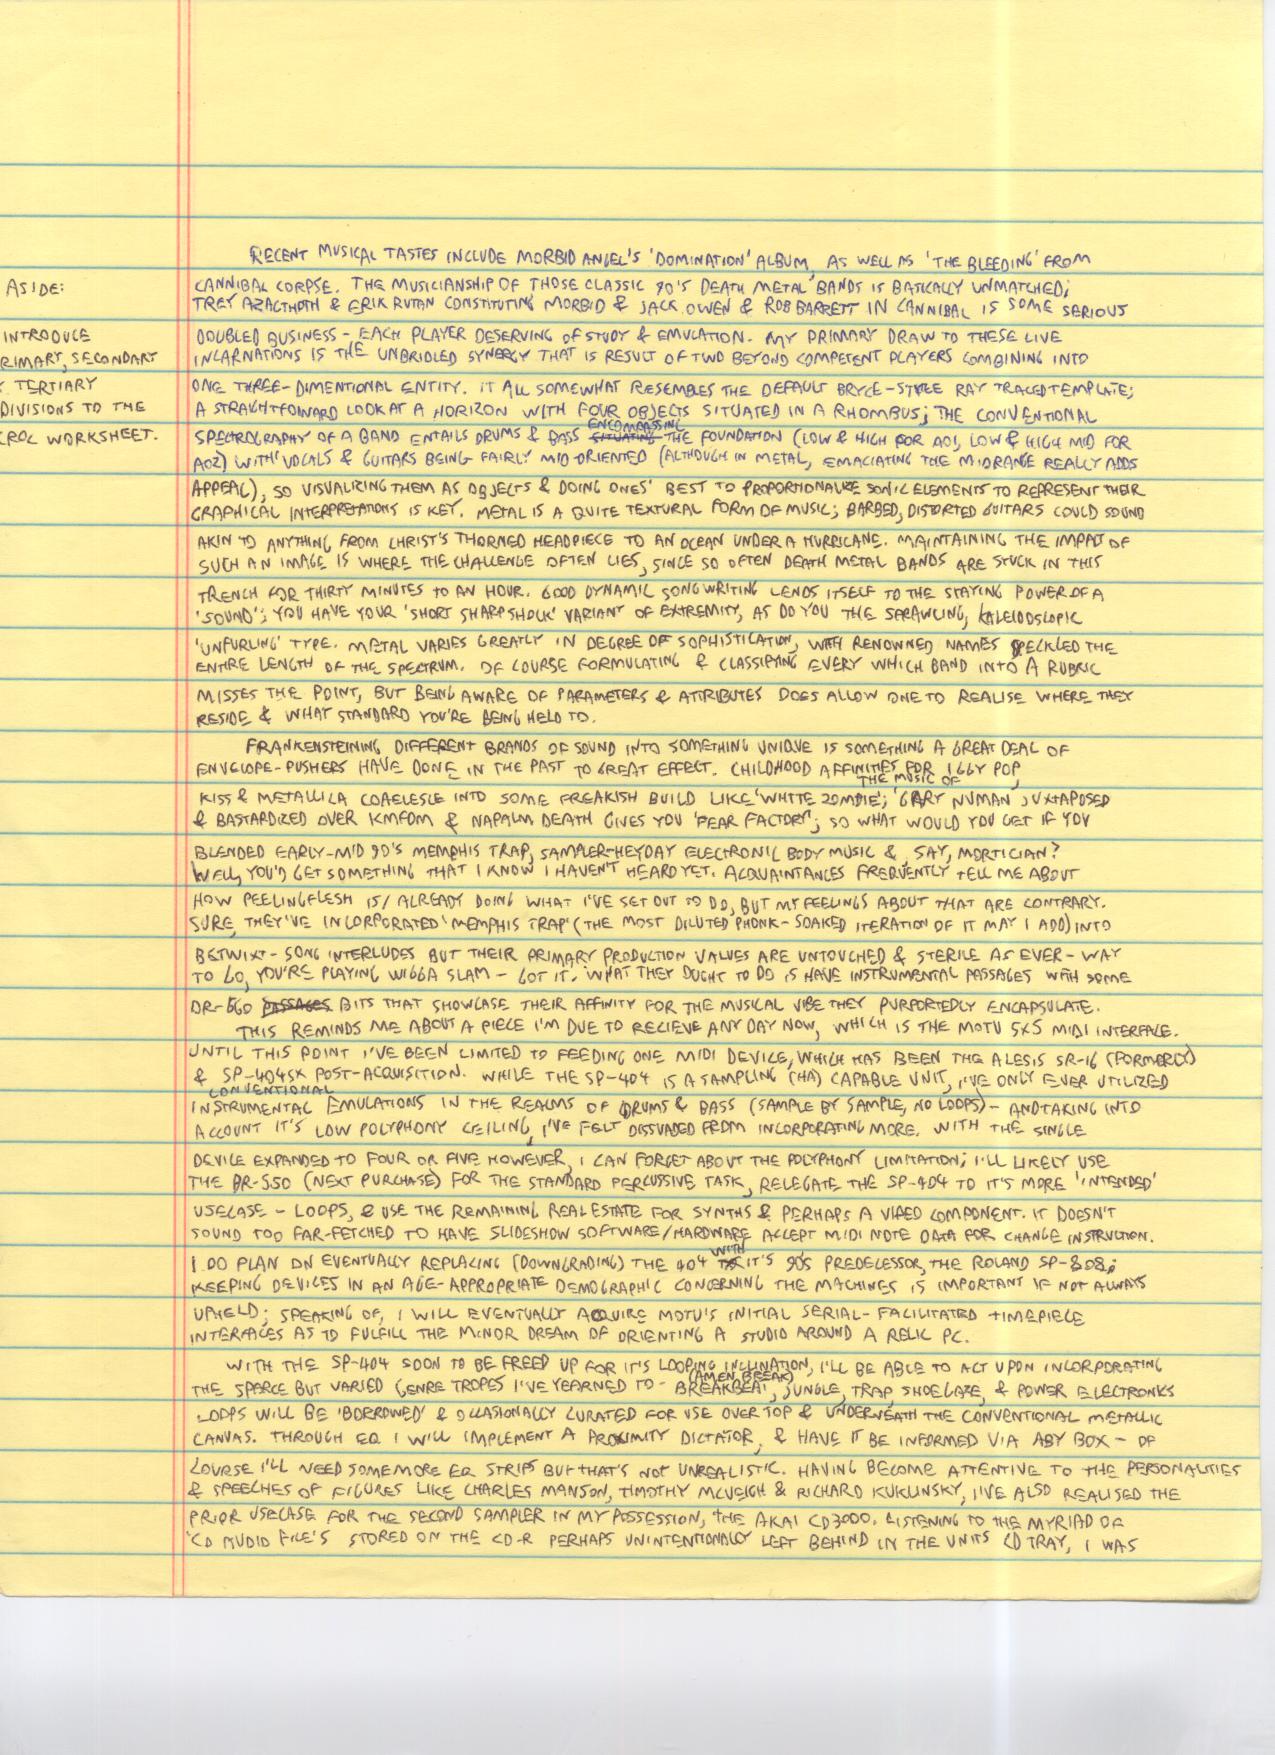 RECENT MUSICAL TASTES INCLUDE MORBID ANGEL'S 'DOMINATION' ALBUM, AS WELL AS 'THE BLEEDING' FROM
CANNIBAL CORPSE. THE MUSICIANSHIP OF THOSE CLASSIC 90'S DEATH METAL BANDS IS BASICALLY UNMATCHED;
TREY AZACTHOTH & ERIK RUTAN CONSTITUTING MORBID & JACK OWEN & ROB BARRETT IN CANNIBAL IS SOME SERIOUS
DOUBLED BUSINESS - EACH PLAYER DESERVING OF STUDY & EMULATION. MY PRIMARY DRAW TO THESE LIVE
INCARNATIONS IS THE UNBRIDLED SYNERGY THAT IS RESULT OF TWO BEYOND COMPETENT PLAYERS COMBINING INTO
ONE THREE-DIMENTIONAL ENTITY. IT ALL SOMEWHAT RESEMBLES THE DEFAULT BRYCE-STYLE RAY TRACED TEMPLATE;
A STRAIGHTFOWARD LOOK AT A HORIZON WITH FOUR OBJECTS SITUATED IN A RHOMBUS; THE CONVENTIONAL
SPECTROGRAPHY OF A BAND ENTAILS DRUMS & BASS SITUATING ENCOMPASSING THE FOUNDATION (LOW & HIGH FOR A01, LOW & HIGH MID FOR
A02) WITH VOCALS & GUITARS BEING FAIRLY MID ORIENTED (ALTHOUGH IN METAL, EMACIATING THE MIDRANGE REALLY ADDS
APPEAL), SO VISUALIZING THEM AS OBJECTS & DOING ONES' BEST TO PROPORTIONALIZE SONIC ELEMENTS TO REPRESENT THEIR
GRAPHICAL INTERPRETATIONS IS KEY. METAL IS A QUITE TEXTURAL FORM OF MUSIC; BARBED, DISTORTED GUITARS COULD SOUND
AKIN TO ANYTHING FROM CHRIST'S THORNED HEADPIECE TO AN OCEAN UNDER A HURRICANE. MAINTAINING THE IMPACT OF
SUCH AN IMAGE IS WHERE THE CHALLENGE OFTEN LIES, SINCE SO OFTEN DEATH METAL BANDS ARE STUCK IN THIS
TRENCH FOR THIRTY MINUTES TO AN HOUR. GOOD DYNAMIC SONGWRITING LENDS ITSELF TO THE STAYING POWER OF A
'SOUND'; YOU HAVE YOUR 'SHORT SHARP SHOCK' VARIANT OF EXTREMITY, AS DO YOU THE SPRAWLING, KALEIDOSCOPIC
'UNFURLING' TYPE. METAL VARIES GREATLY IN DEGREE OF SOPHISTICATION, WITH RENOWNED NAMES SPECKLED THE
ENTIRE LENGTH OF THE SPECTRUM. OF COURSE FORMULATING & CLASSIFYING EVERY WHICH BAND INTO A RUBRIC
MISSES THE POINT, BUT BEING AWARE OF PARAMETERS & ATTRIBUTES DOES ALLOW ONE TO REALISE WHERE THEY
RESIDE & WHAT STANDARD YOU'RE BEING HELD TO.
FRANKENSTEINING DIFFERENT BRANDS OF SOUND INTO SOMETHING UNIQUE IS SOMETHING A GREAT DEAL OF
ENVELOPE-PUSHERS HAVE DONE IN THE PAST TO GREAT EFFECT. CHILDHOOD AFFINITIES FOR IGGY POP,
KISS & METALLICA COAELESLE INTO SOME FREAKISH BUILD LIKE 'WHITE ZOMBIE'; THE MUSIC OF 'GARY NUMAN' JUXTAPOSED
& BASTARDIZED OVER KMFDM & NAPALM DEATH GIVES YOU 'FEAR FACTORY'; SO WHAT WOULD YOU GET IF YOU
BLENDED EARLY-MID 90'S MEMPHIS TRAP, SAMPLER-HEYDAY ELECTRONIC BODY MUSIC &, SAY, MORTICIAN?
WELL, YOU'D GET SOMETHING THAT I KNOW I HAVEN'T HEARD YET. ACQUAINTANCES FREQUENTLY TELL ME ABOUT
HOW PEELINGFLESH IS/ALREADY DOING WHAT I'VE SET OUT TO DO, BUT MY FEELINGS ABOUT THAT ARE CONTRARY.
SURE, THEY'VE INCORPORATED 'MEMPHIS TRAP' (THE MOST DILUTED PHONK-SOAKED ITERATION OF IT MAY I ADD) INTO
BETWIXT-SONG INTERLUDES BUT THEIR PRIMARY PRODUCTION VALUES ARE UNTOUCHED & STERILE AS EVER - WAY
TO GO, YOU'RE PLAYING WIGGA SLAM - GOT IT. WHAT THEY OUGHT TO DO IS HAVE INSTRUMENTAL PASSAGES WITH SOME
DR-660 PASSAGES BITS THAT SHOWCASE THEIR AFFINITY FOR THE MUSICAL VIBE THEY PURPORTEDLY ENCAPSULATE.
THIS REMINDS ME ABOUT A PIECE I'M DUE TO RECIEVE ANY DAY NOW, WHICH IS THE MOTU 5X5 MIDI INTERFACE.
UNTIL THIS POINT I'VE BEEN LIMITED TO FEEDING ONE MIDI DEVICE, WHICH HAS BEEN THE ALESIS SR-16 (FORMERLY)
& SP-404SX POST-ACQUISITION. WHILE THE SP-404 IS A SAMPLING (HA) CAPABLE UNIT, I'VE ONLY EVER UTILIZED
CONVENTIONAL
INSTRUMENTAL EMULATIONS IN THE REALMS OF DRUMS & BASS (SAMPLE BY SAMPLE, NO LOOPS) - AND TAKING INTO
ACCOUNT IT'S LOW POLYPHONY CEILING, I'VE FELT DISSUADED FROM INCORPORATING MORE. WITH THE SINGLE
DEVICE EXPANDED TO FOUR OR FIVE HOWEVER, I CAN FORGET ABOUT THE POLYPHONY LIMITATION; I'LL LIKELY USE
THE DR-550 (NEXT PURCHASE) FOR THE STANDARD PERCUSSIVE TASK, RELEGATE THE SP-404 TO IT'S MORE 'INTENDED'
USECASE - LOOPS, & USE THE REMAINING REAL ESTATE FOR SYNTHS & PERHAPS A VIDEO COMPONENT. IT DOESN'T
SOUND TOO FAR-FETCHED TO HAVE SLIDESHOW SOFTWARE/HARDWARE ACCEPT MIDI NOTE DATA FOR CHANGE INSTRUCTION.
I DO PLAN ON EVENTUALLY REPLACING (DOWNGRADING) THE 404 WITH IT'S 90'S PREDECESSOR, THE ROLAND SP-808;
KEEPING DEVICES IN AN AGE-APPROPRIATE DEMOGRAPHIC CONCERNING THE MACHINES IS IMPORTANT IF NOT ALWAYS
UPHELD; SPEAKING OF, I WILL EVENTUALLY ACQUIRE MOTU'S INITIAL SERIAL-FACILITATED TIMEPIECE
INTERFACES AS TO FULFILL THE MINOR DREAM OF ORIENTING A STUDIO AROUND A RELIC PC.
WITH THE SP-404 SOON TO BE FREED UP FOR IT'S LOOPING INCLINATION, I'LL BE ABLE TO ACT UPON INCORPORATING
THE SPARCE BUT VARIED GENRE TROPES I'VE YEARNED TO - BREAKBEAT (AMEN BREAK), JUNGLE, TRAP, SHOEGAZE, & POWER ELECTRONICS
LOOPS WILL BE 'BORROWED' & OCCASIONALLY CURATED FOR USE OVER TOP & UNDERNEATH THE CONVENTIONAL METALLIC
CANVAS. THROUGH EQ I WILL IMPLEMENT A PROXIMITY DICTATOR, & HAVE IT BE INFORMED VIA ABY BOX - OF
COURSE I'LL NEED SOME MORE EQ STRIPS BUT THAT'S NOT UNREALISTIC. HAVING BECOME ATTENTIVE TO THE PERSONALITIES
& SPEECHES OF FIGURES LIKE CHARLES MANSON, TIMOTHY MCVEIGH & RICHARD KUKLINSKY, I'VE ALSO REALISED THE
PRIOR USECASE FOR THE SECOND SAMPLER IN MY POSSESSION, THE AKAI CD3000. LISTENING TO THE MYRIAD OF
'CD AUDIO FILE'S STORED ON THE CD-R PERHAPS UNINTENTIONALLY LEFT BEHIND IN THE UNITS CD TRAY, I WAS
ASIDE:
INTRODUCE
RIMARY, SECONDARY
TERTIARY
DIVISIONS TO THE
CROC WORKSHEET.